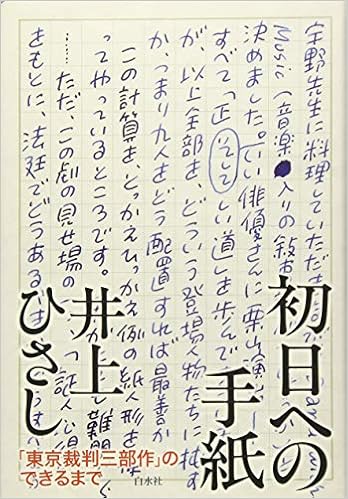 宇野先生に料理していただ
Music (音楽 入りの叙
決めました。(いい俳優さんに栗山演
すべて「正 しい道」を歩んで
が、以上全部を、どういう登場人物たちに托
か、つまり九人をどう配置すれば最善か
この計算を、とっかえひっかえ例の紙人形を
ってやっているところです。 難問
……ただ、この劇の見せ場の
をもとに、法廷でどうある
初日への
手紙
井上
ひさし
「東京裁判三部作」の
できるまで
白水社